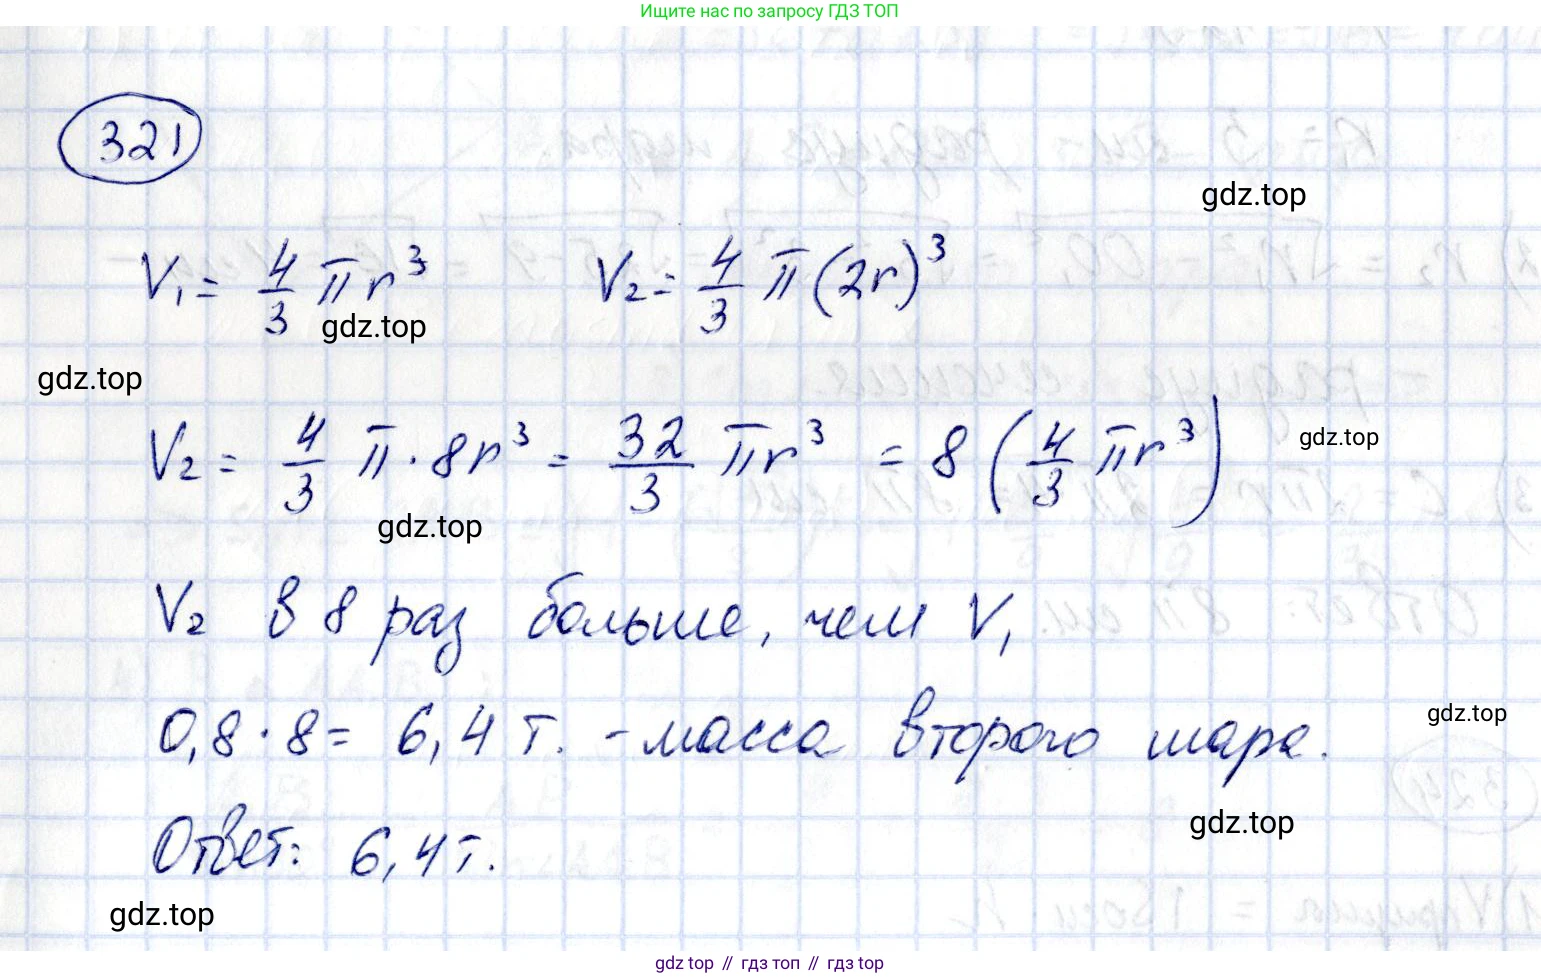 Ищите нас по запросу ГДЗ ТОП
321
gdz.top
V₁ = 4/3 πr³ V₂ = 4/3 π(2r)³
gdz.top
gdz.top
V₂ = 4/3 π · 8r³ = 32/3 πr³ = 8 (4/3 πr³)
gdz.top
gdz.top
V₂ в 8 раз больше, чем V₁
0,8 · 8 = 6,4 т. - масса второго шара.
gdz.top
gdz.top
Ответ: 6,4 т.
gdz.top
gdz top // гдз топ // гдз.top